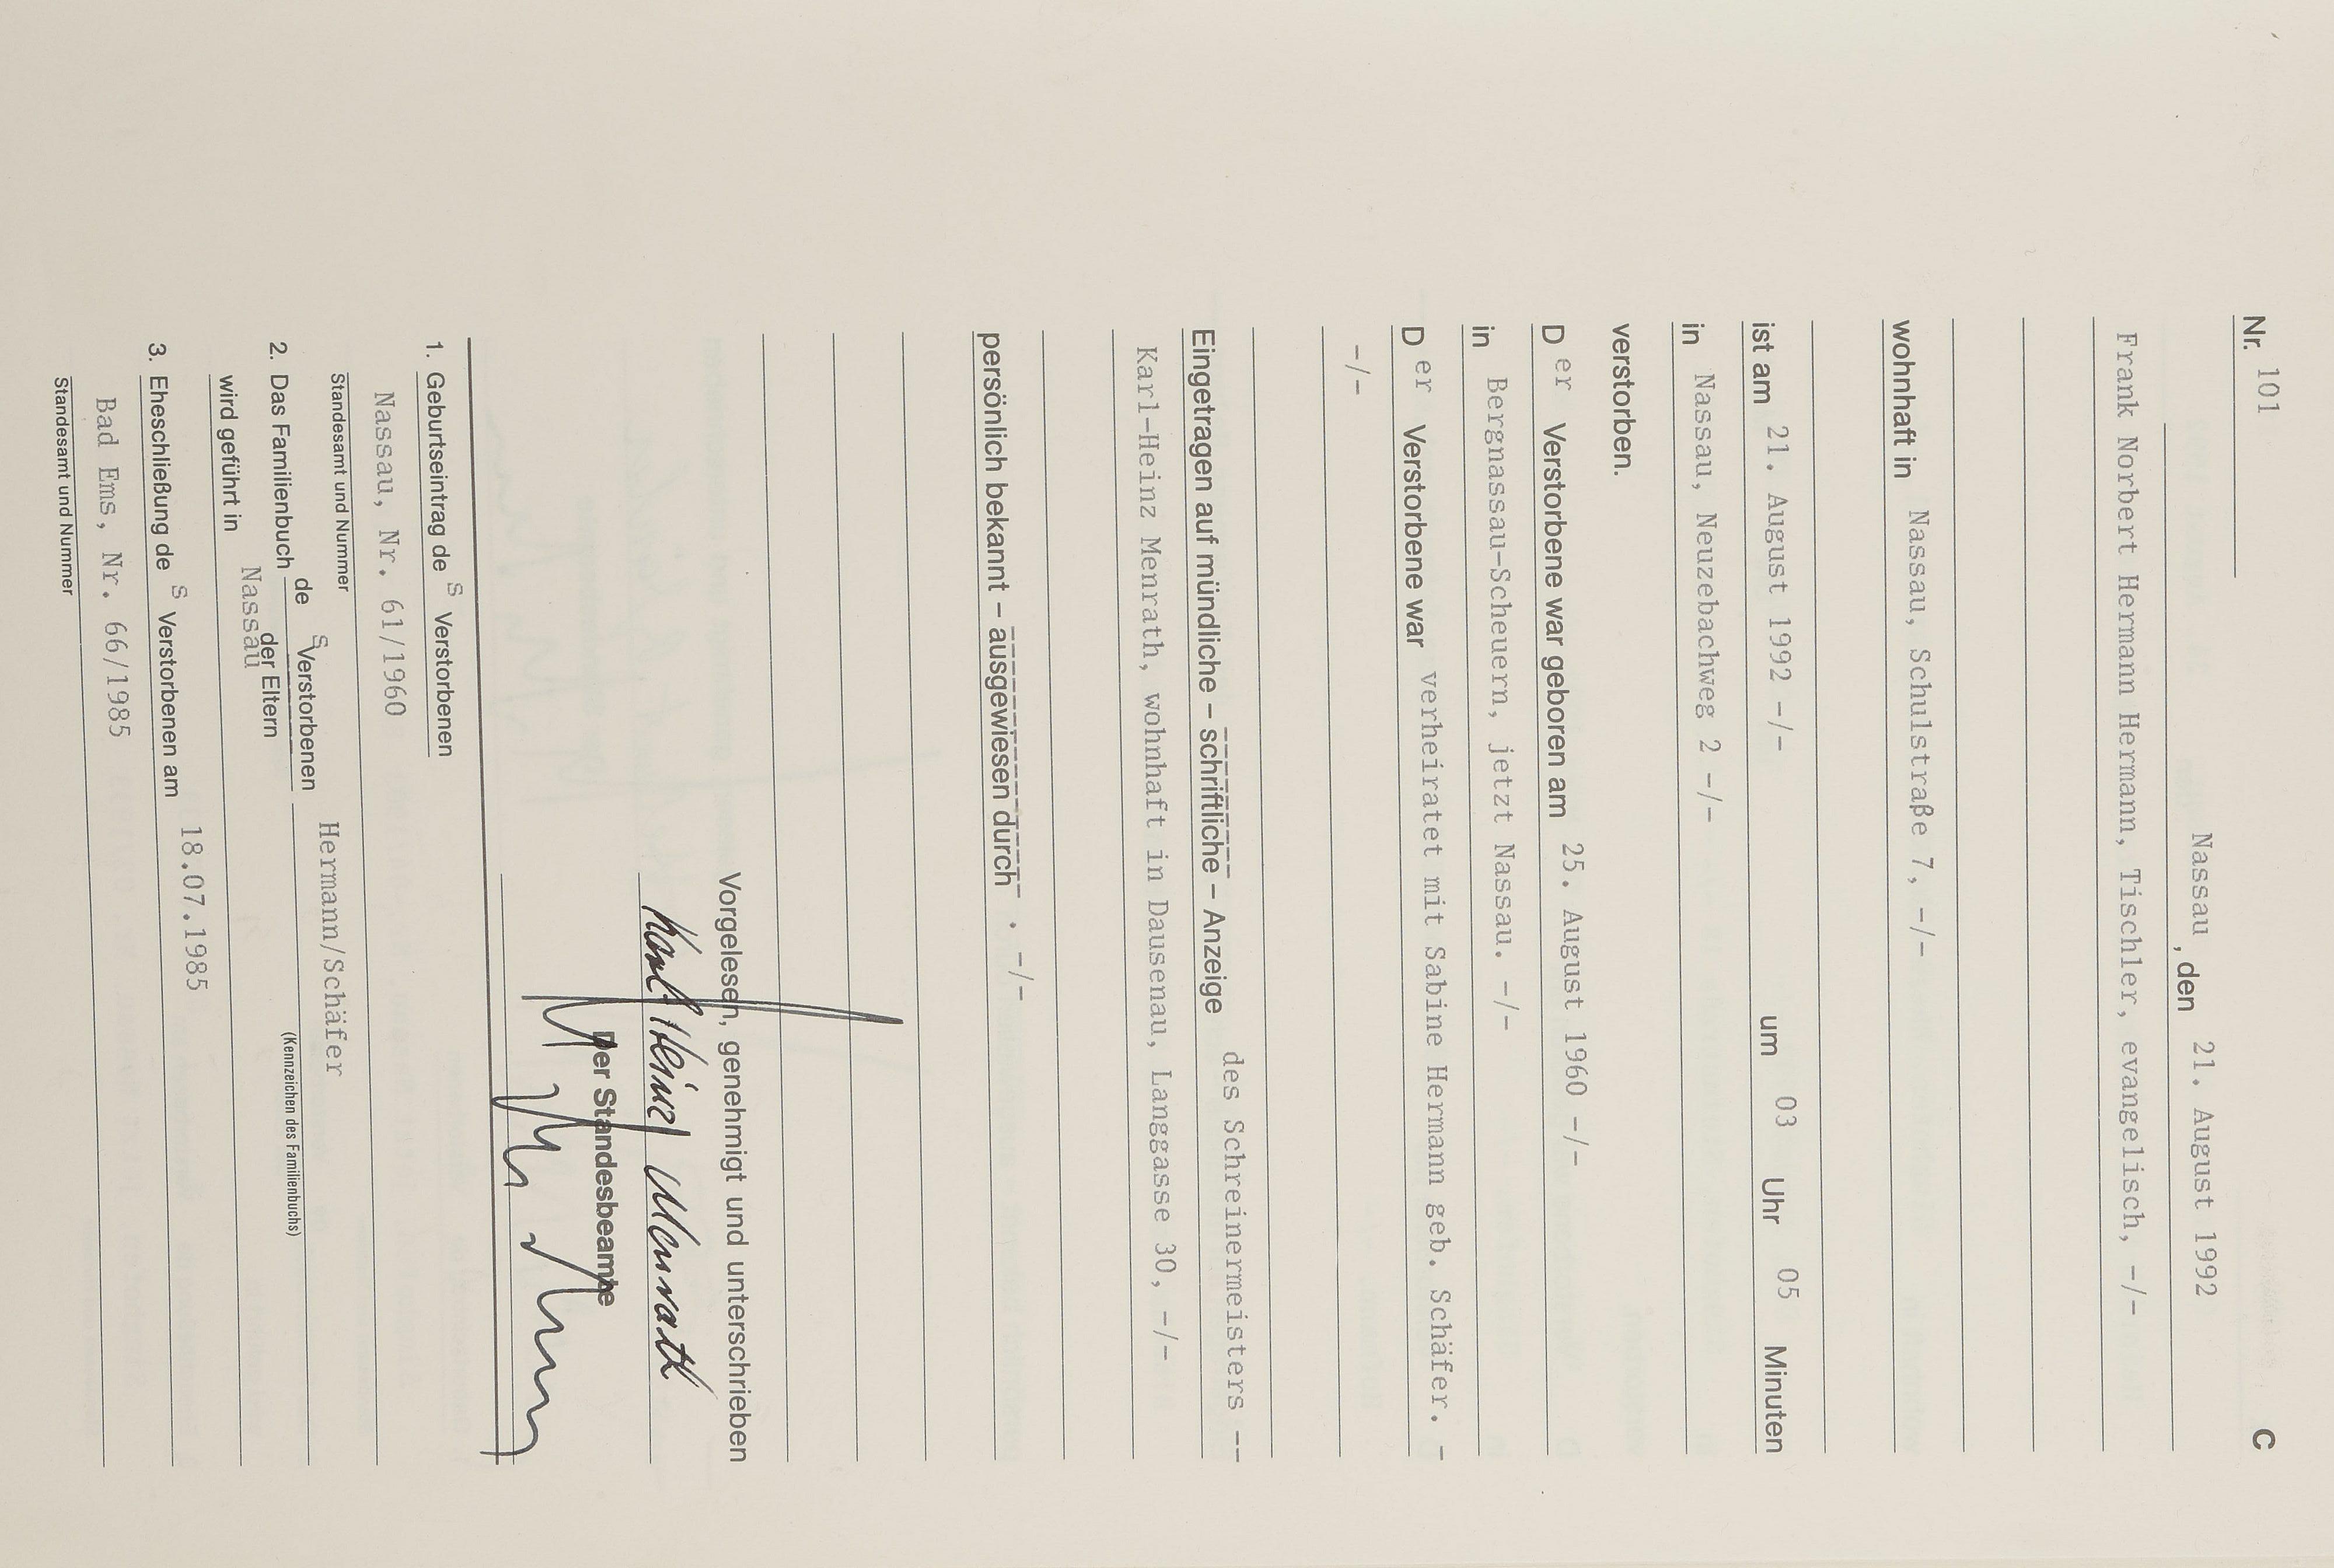 Nr. 101 C
Nassau, den 21. August 1992
Frank Norbert Hermann Hermann, Tischler, evangelisch, -/-
wohnhaft in Nassau, Schulstraße 7, -/-
ist am 21. August 1992 -/- um 03 Uhr 05 Minuten
in Nassau, Neuzebachweg 2 -/-
verstorben.
D er Verstorbene war geboren am 25. August 1960 -/-
in Bergnassau-Scheuern, jetzt Nassau. -/-
D er Verstorbene war verheiratet mit Sabine Hermann geb. Schäfer. -
-/-
Eingetragen auf mündliche – schriftliche – Anzeige des Schreinermeisters --
Karl-Heinz Menrath, wohnhaft in Dausenau, Langgasse 30, -/-
persönlich bekannt – ausgewiesen durch . -/-
Vorgelesen, genehmigt und unterschrieben
Karl Heinz Menrath
Der Standesbeamte
1. Geburtseintrag de s Verstorbenen
Nassau, Nr. 61/1960
Standesamt und Nummer
2. Das Familienbuch de s Verstorbenen Hermann/Schäfer
der Eltern (Kennzeichen des Familienbuchs)
wird geführt in Nassau
3. Eheschließung de s Verstorbenen am 18.07.1985
Bad Ems, Nr. 66/1985
Standesamt und Nummer